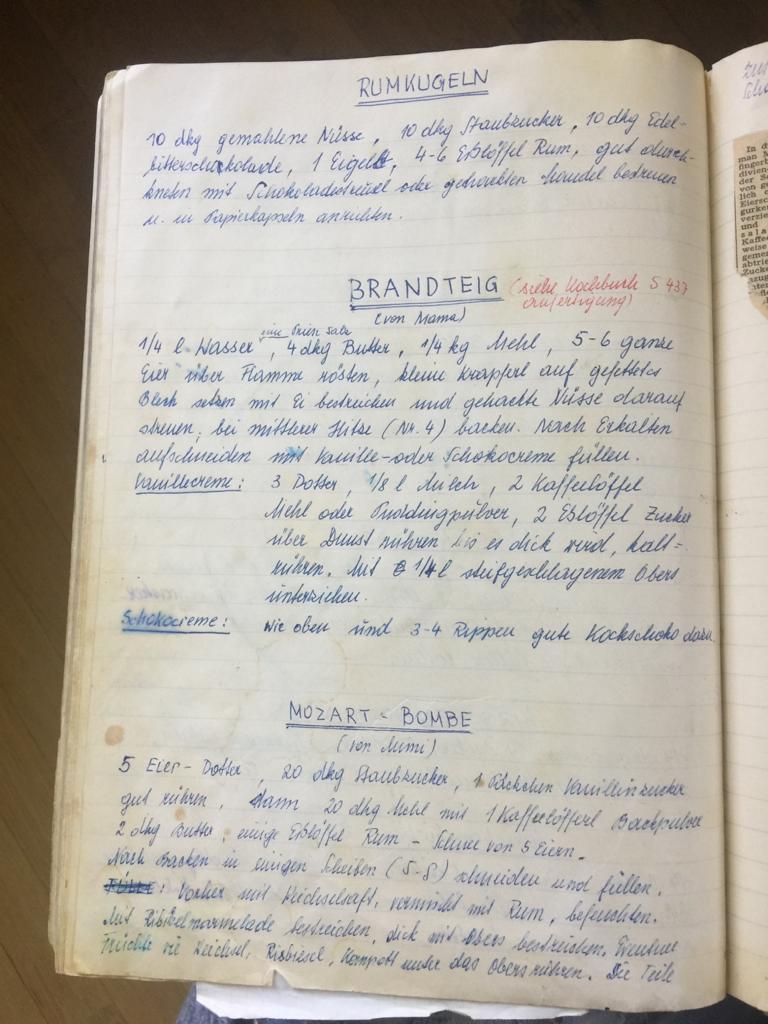 RUMKUGELN
10 dkg gemahlene Nüsse, 10 dkg Staubzucker, 10 dkg Edel-
bitterschokolade, 1 Eigelb, 4-6 Eßlöffel Rum, gut durch-
kneten mit Schokoladestreusel oder gehackten Mandel bestreuen
u. in Papierkapseln anrichten.
BRANDTEIG (siehe Kochbuch S 437
Anfertigung)
(von Mama)
eine Prise Salz
1/4 l Wasser, 4 dkg Butter, 1/4 kg Mehl, 5-6 ganze
Eier über Flamme rösten, kleine Krapferl auf gefettetes
Blech setzen mit Ei bestreichen und gehackte Nüsse darauf
streuen, bei mittlerer Hitze (Nr. 4) backen. Nach Erkalten
aufschneiden mit Vanille- oder Schokocreme füllen.
Vanillecreme: 3 Dotter, 1/8 l Milch, 2 Kaffeelöffel
Mehl oder Puddingpulver, 2 Eßlöffel Zucker
über Dunst rühren bis es dick wird, kalt=
rühren. Mit 1/4 l steifgeschlagenem Obers
unterziehen.
Schokocreme: wie oben und 3-4 Rippen gute Kochschoko dazu
MOZART - BOMBE
(von Mimi)
5 Eier-Dotter, 20 dkg Staubzucker, 1 Päckchen Vanillinzucker
gut rühren, dann 20 dkg Mehl mit 1 Kaffeelöfferl Backpulver
2 dkg Butter, einige Eßlöffel Rum - Schnee von 5 Eiern.
Nach Backen in einigen Scheiben (5-8) schneiden und füllen.
Vorher mit Weichselsaft, vermischt mit Rum, befeuchten.
Mit Ribiselmarmelade bestreichen, dick mit Obers bestreichen. Eventuell
Früchte wie Weichsel, Ribisel, Kompott unter das Obers rühren. Die Teile